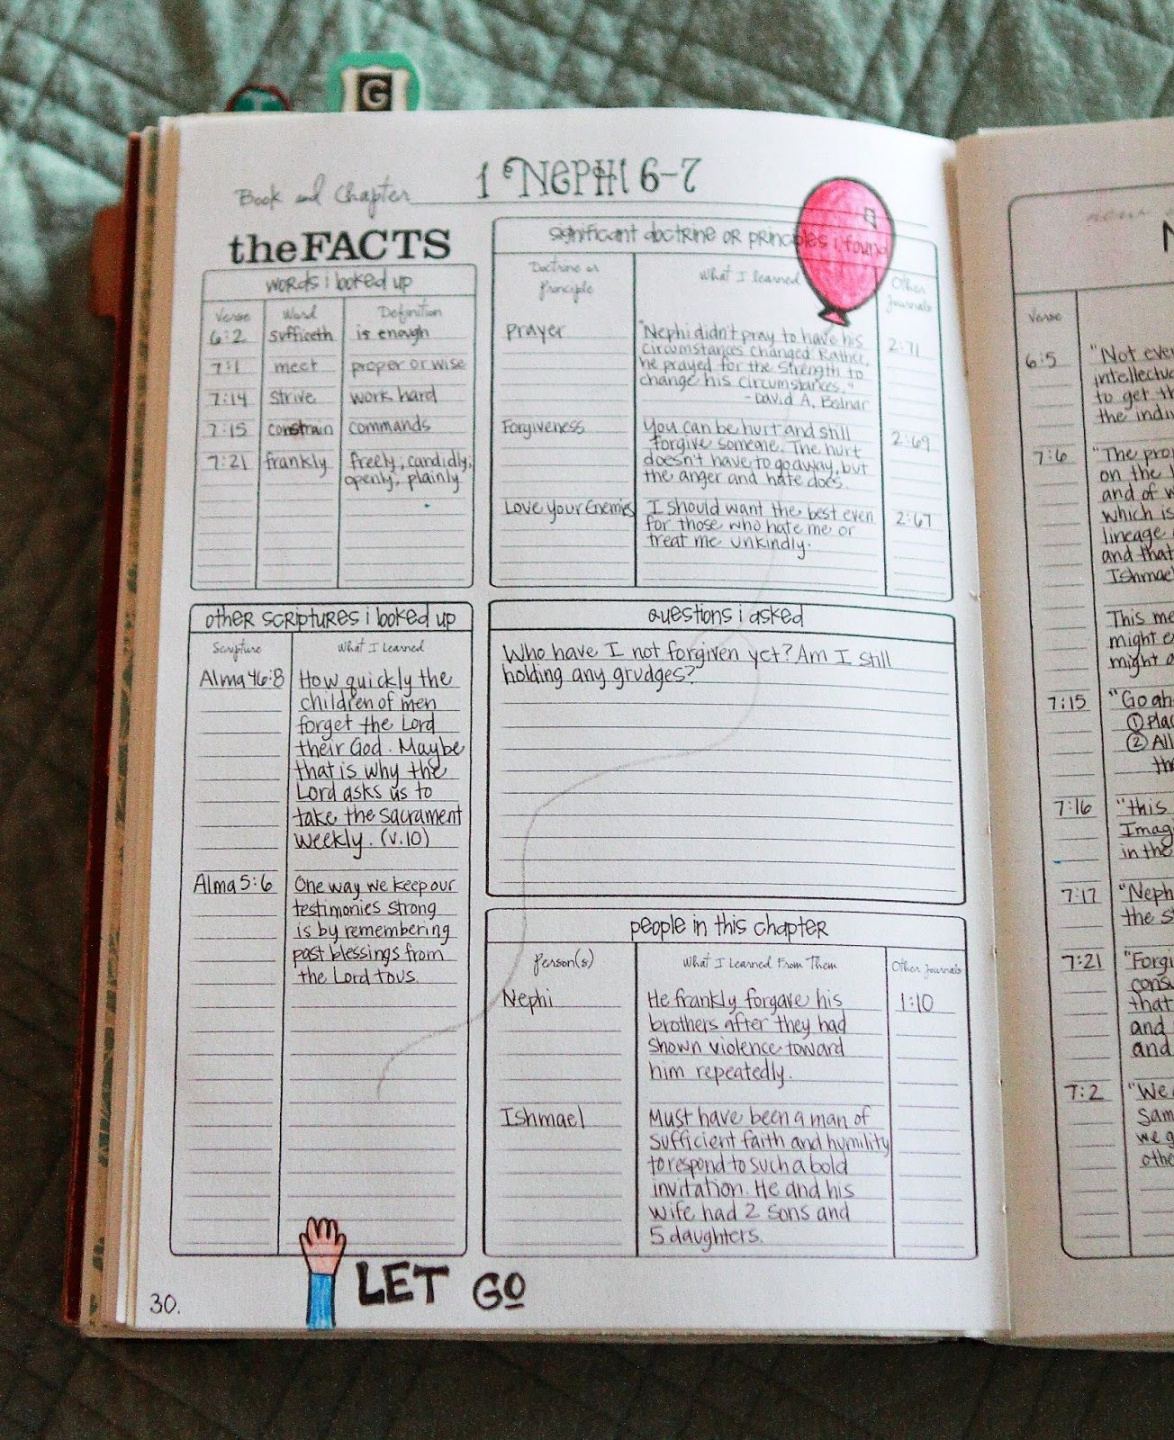 G
1 Nephi 6-7
Book and Chapter
the FACTS
words i looked up
Verse Word Definition
6:2 sufficeth is enough
7:1 meet proper or wise
7:14 strive work hard
7:15 constrain commands
7:21 frankly freely, candidly,
openly, plainly
significant doctrine or principles i found
Doctrine or
Principle
What I learned
Other
Journals
Prayer
"Nephi didn't pray to have his
circumstances changed. Rather,
he prayed for the strength to
change his circumstances."
- David A. Bednar
2:71
Forgiveness
You can be hurt and still
forgive someone. The hurt
doesn't have to go away, but
the anger and hate does.
2:69
Love Your Enemies
I should want the best even
for those who hate me or
treat me unkindly.
2:67
other scriptures i looked up
Scripture What I Learned
Alma 46:8
How quickly the
children of men
forget the Lord
their God. Maybe
that is why the
Lord asks us to
take the sacrament
weekly. (v.10)
Alma 5:6
One way we keep our
testimonies strong
is by remembering
past blessings from
the Lord to us.
questions i asked
Who have I not forgiven yet? Am I still
holding any grudges?
people in this chapter
Person(s) What I Learned From Them Other Journals
Nephi
He frankly forgave his
brothers after they had
shown violence toward
him repeatedly.
1:10
Ishmael
Must have been a man of
sufficient faith and humility
to respond to such a bold
invitation. He and his
wife had 2 sons and
5 daughters.
LET GO
30.
Verse
6:5 "Not ever
intellectu
to get th
the indi
7:6 "The pro
on the
and of w
which is
lineage
and that
Ishmae
This me
might e
might a
7:15 "Go ah
① Plac
② All
th
7:16 "this
Imag
in the
7:17 "Neph
the s
7:21 "Forgi
consu
that
and
and
7:2 "We
Sam
we g
othe